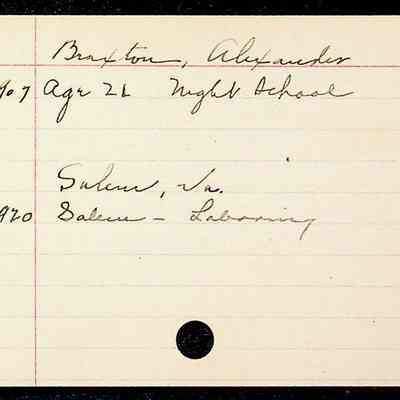 Braxton, Alexander
907 Age 21 Night School
Salem, Va.
920 Salem - Laboring